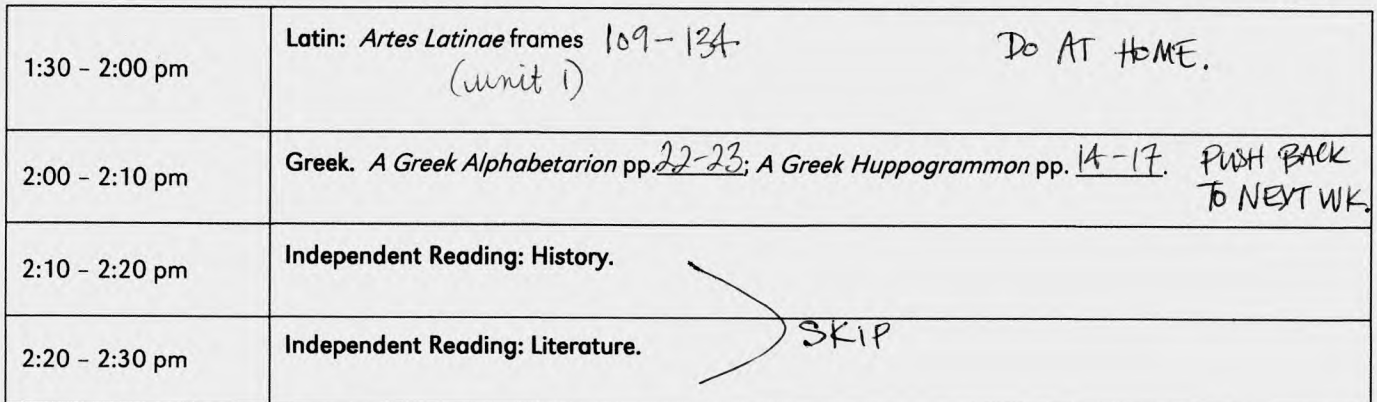 1:30 – 2:00 pm
Latin: Artes Latinae frames 109-134 DO AT HOME.
(unit 1)
2:00 – 2:10 pm
Greek. A Greek Alphabetarion pp. 22-23; A Greek Huppogrammon pp. 14-17. PUSH BACK
TO NEXT WK.
2:10 – 2:20 pm
Independent Reading: History.
SKIP
2:20 – 2:30 pm
Independent Reading: Literature.